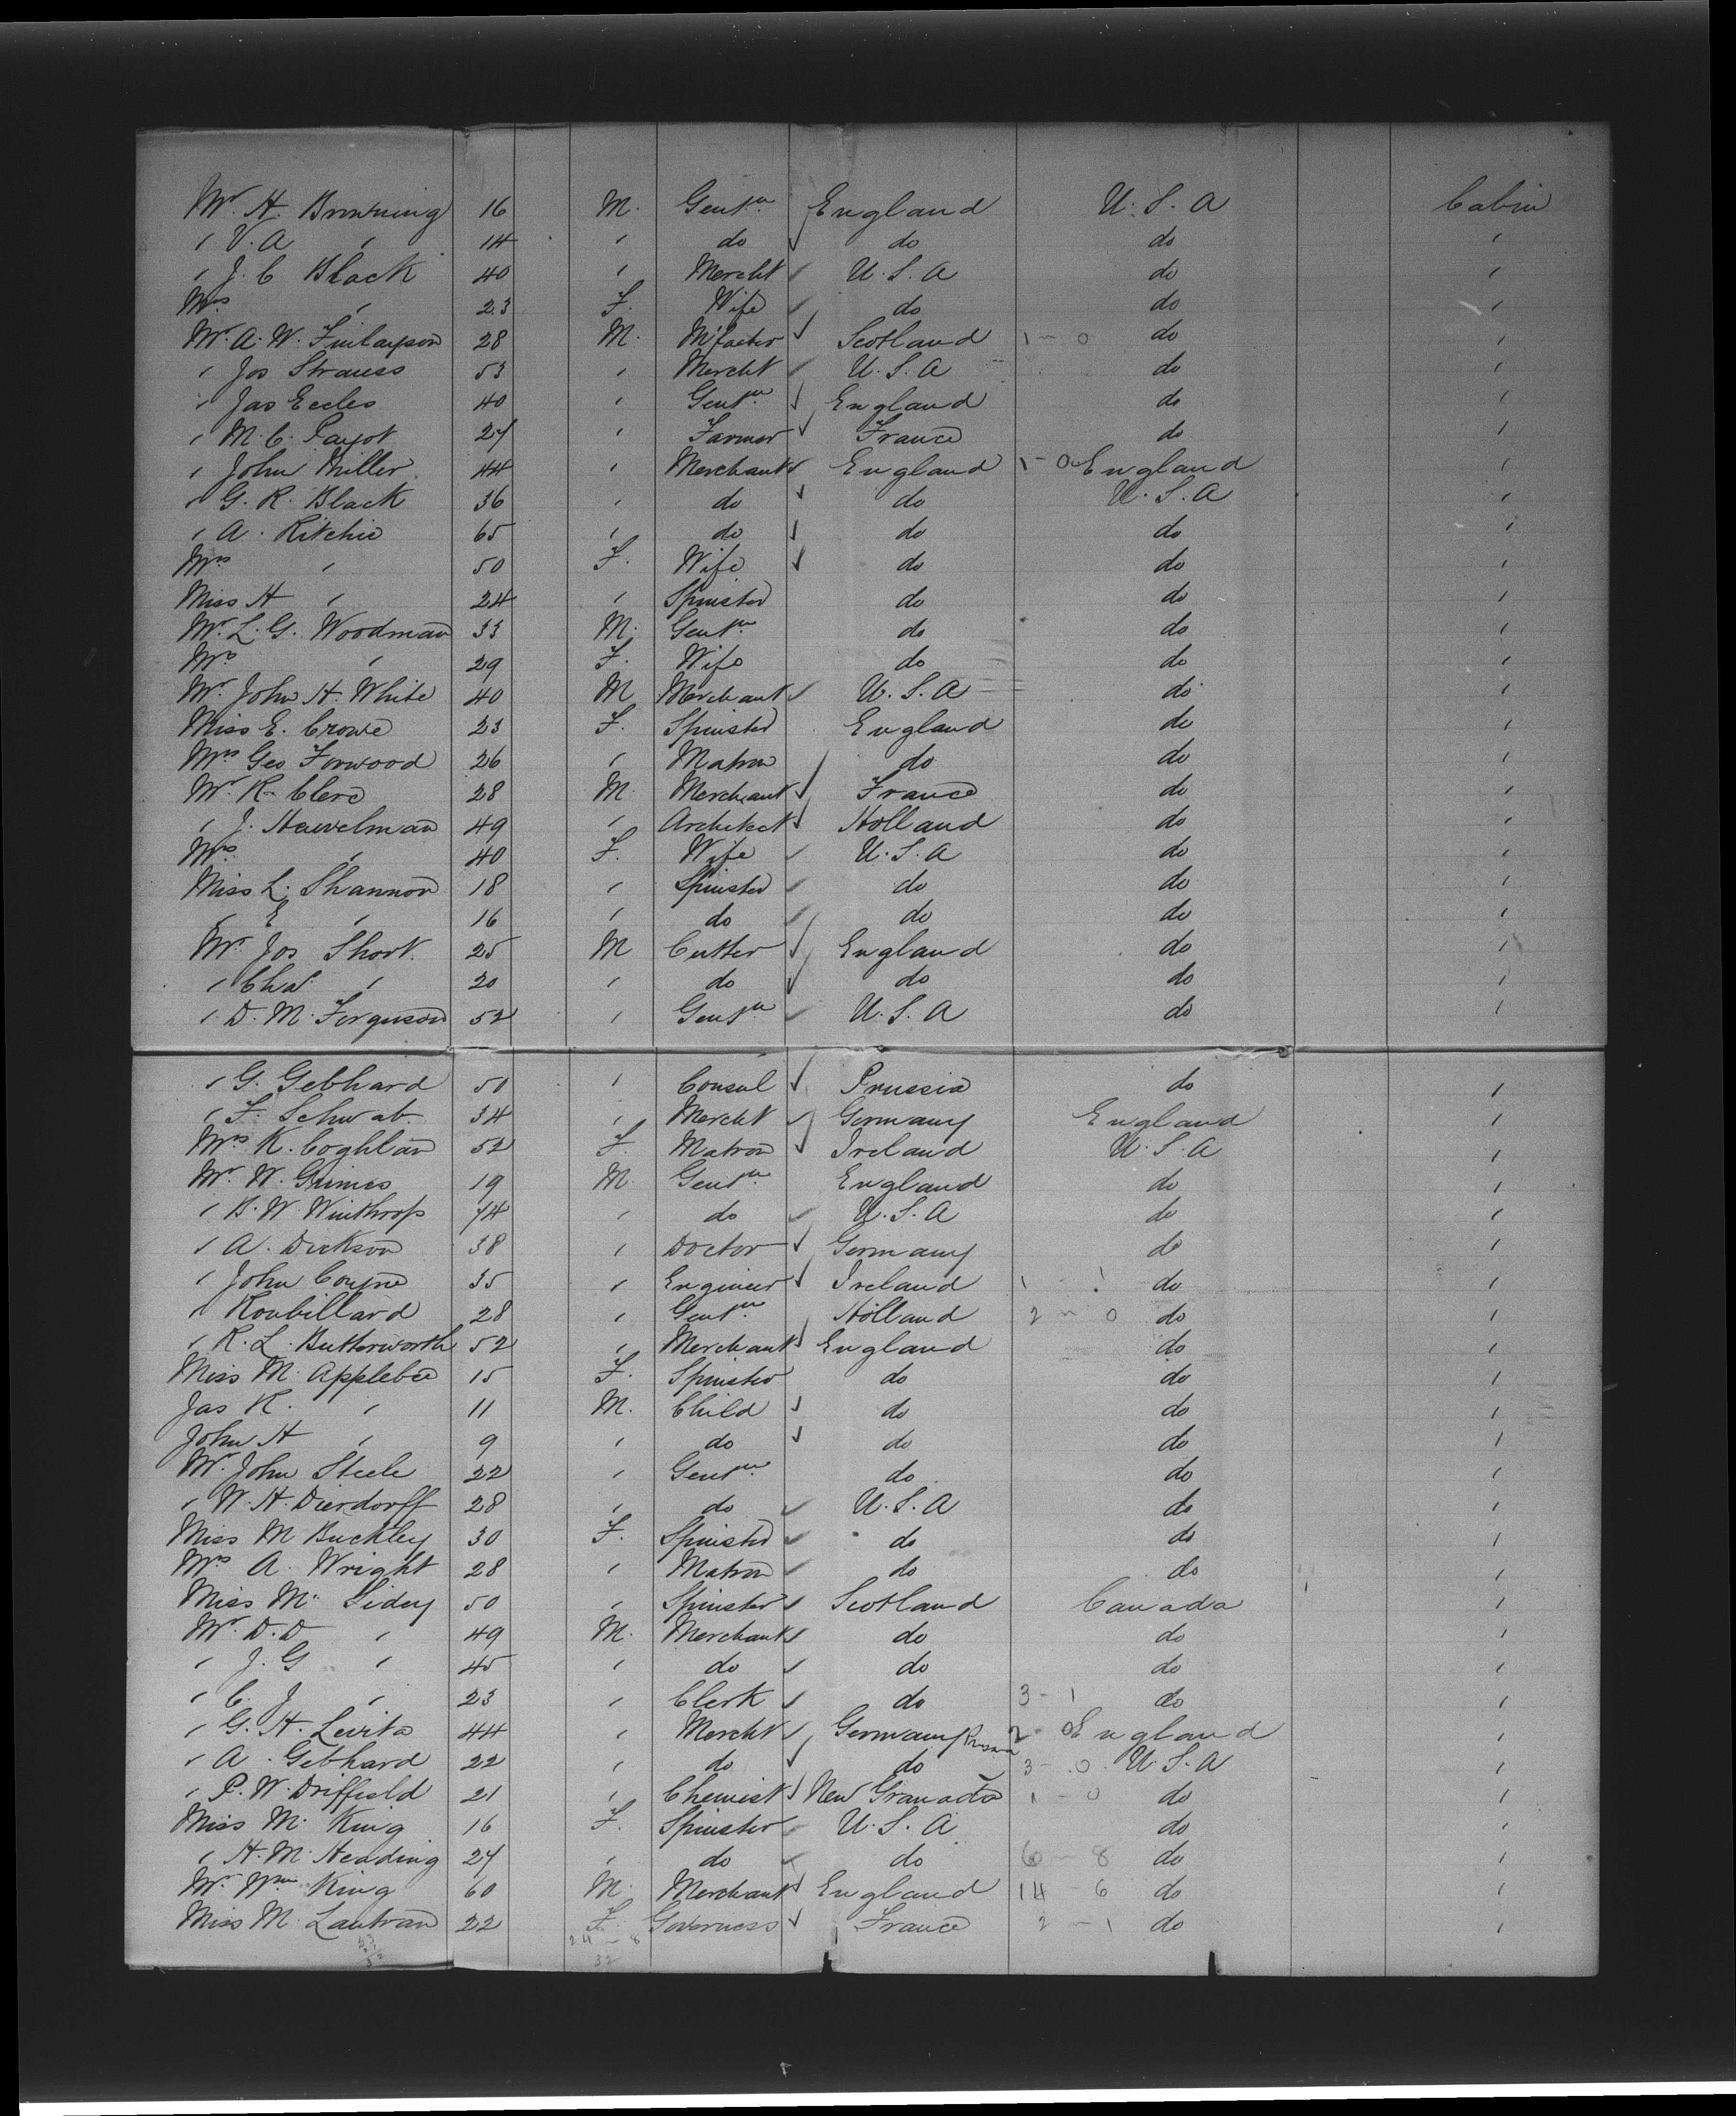 Mr. H. Browning 16 M. Gentn. England U.S.A Cabin
" V. A " 14 " do do do "
" J. C Black 40 " Mercht U.S.A do "
Mrs " 23 F. Wife do do "
Mr. A. W. Finlayson 28 M. M'facter Scotland 1 - 0 do "
" Jos Strauss 53 " Mercht U.S.A do "
" Jas Eccles 40 " Gentn. England do "
" M. C. Payot 27 " Farmer France do "
" John Miller 44 " Merchant England 1 - 0 England "
" G. R. Black 36 " do do U.S.A "
" A. Ritchie 65 " do do do "
Mrs " 50 F. Wife do do "
Miss H " 24 " Spinster do do "
Mr. L. G. Woodman 33 M. Gentn. do do "
Mrs " 29 F. Wife do do "
Mr. John H. White 40 M Merchant U.S.A do "
Miss E. Crowe 23 F. Spinster England do "
Mrs Geo Forwood 26 " Matron do do "
Mr. R. Clerc 28 M. Merchant France do "
" J. 49 " Architect Holland do "
Mrs " 40 F. Wife U.S.A do "
Miss L. Shannon 18 " Spinster do do "
" E " 16 " do do do "
Mr. Jos Short. 25 M Cutter England do "
" Chas " 20 " do do do "
" D. M. Ferguson 52 " Gentn. U.S.A do "
" G. Gebhard 50 " Consul Prussia do "
" F. Schwab. 34 " Mercht Germany England "
Mrs K. Coghlan 52 F. Matron Ireland U.S.A "
Mr. W. Grimes 19 M. Gentn. England do "
" B. W Winthrop 74 " do U.S.A do "
" A. Dickson 38 " Doctor Germany do "
" John Coyne 35 " Engineer Ireland 1 - 1 do "
" Roubillard 28 " Gentn. Holland 2 - 0 do "
" R. L. Butterworth 52 " Merchant England do "
Miss M. Applebee 15 F. Spinster do do "
Jas R. " 11 M. Child do do "
John H " 9 " do do do "
Mr. John Steele 22 " Gentn. do do "
" W. H. Dierdorff 28 " do U.S.A do "
Miss M Buckley 30 F. Spinster do do "
Mrs A. Wright 28 " Matron do do "
Miss M. Sidey 50 " Spinster Scotland Canada "
Mr. D. D " 49 M. Merchant do do "
" J. G " 45 " do do do "
" C. J " 23 " Clerk do 3 - 1 do "
" G. H. Levita 44 " Mercht Germany Prussia 2 - 0 England "
" A. Gebhard 22 " do do 3 - 0 U.S.A "
" P. W. Driffield 21 " Chemist New Granada 1 - 0 do "
Miss M. King 16 F. Spinster U.S.A do "
" H. M. Heading 27 " do do 6 - 8 do "
Mr. Wm King 60 M. Merchant England 14 - 6 do "
Miss M. Lautran 22 F. Governess France 2 - 1 do "
24 - 8
32